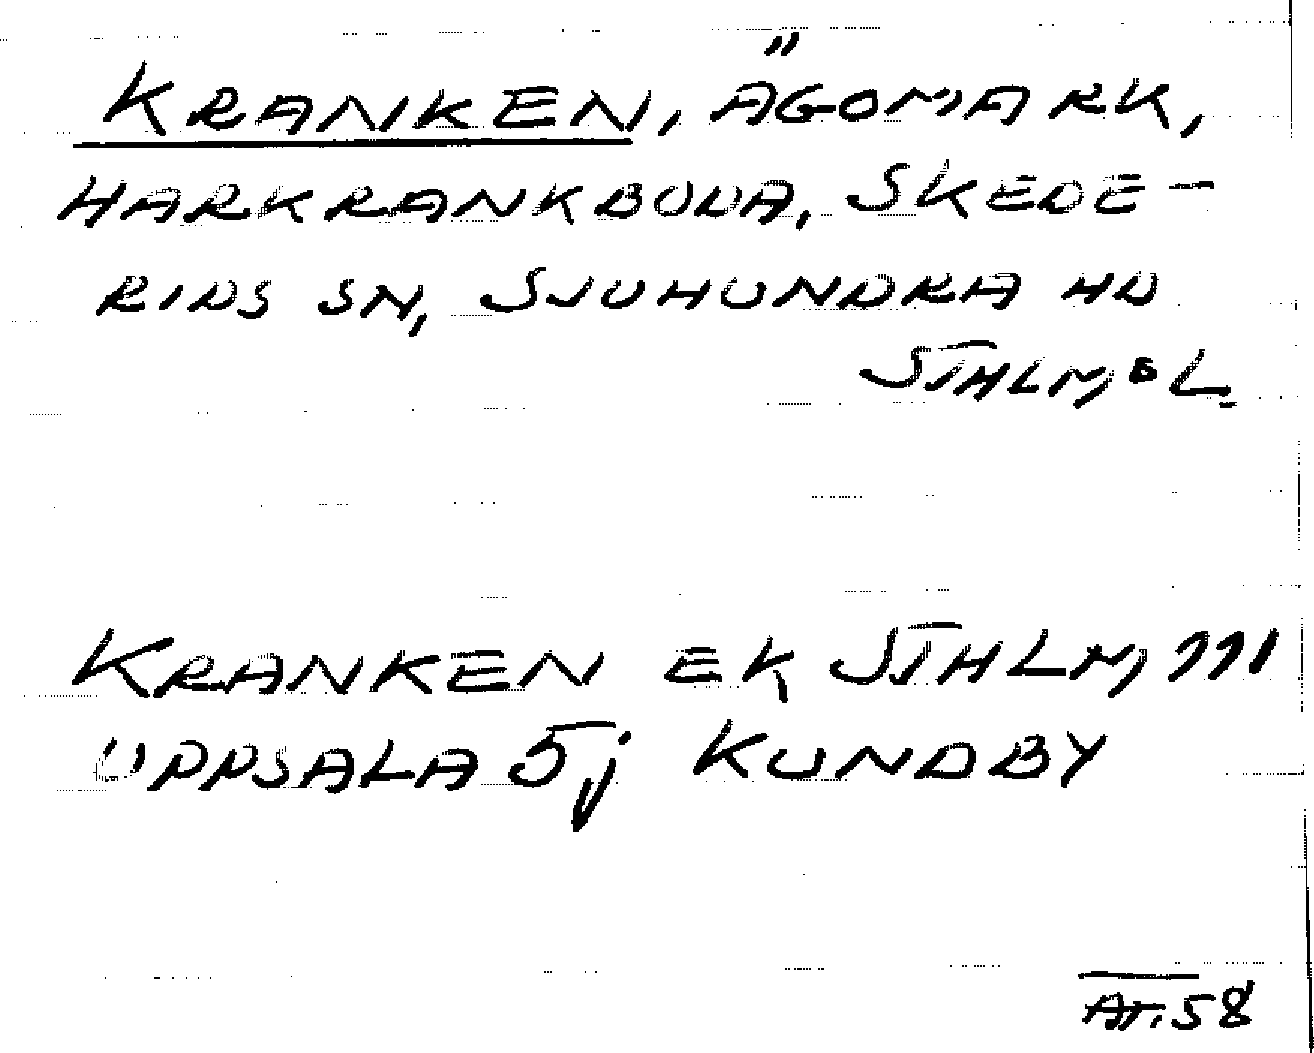 KRANKEN, ÄGOMARK,
HARKRANKBODA, SKEDE-
RIDS SN, SJUHUNDRA HD
STHLMS L.
KRANKEN EK STHLM 111
UPPSALA 5j KUNDBY
AT. 58